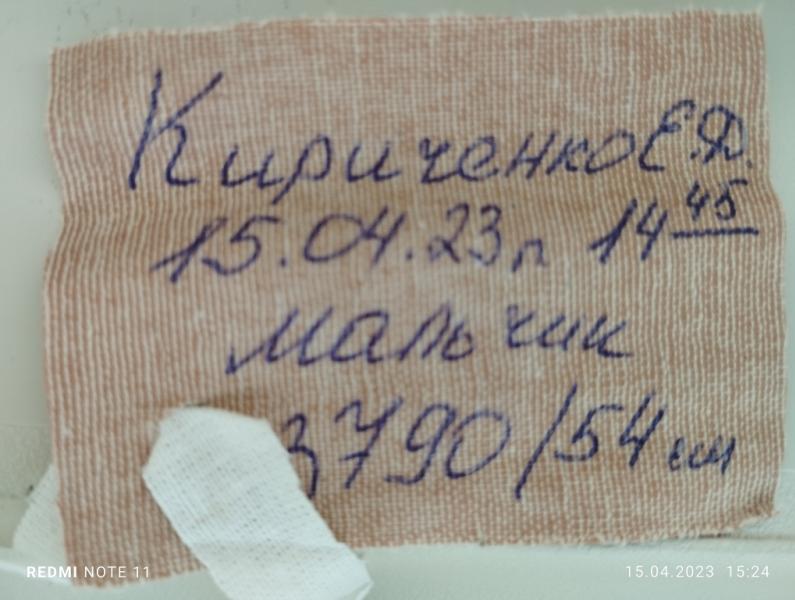 Кириченко Е.Д.
15.04.23г 14 45
мальчик
3790/54 см
REDMI NOTE 11
15.04.2023 15:24